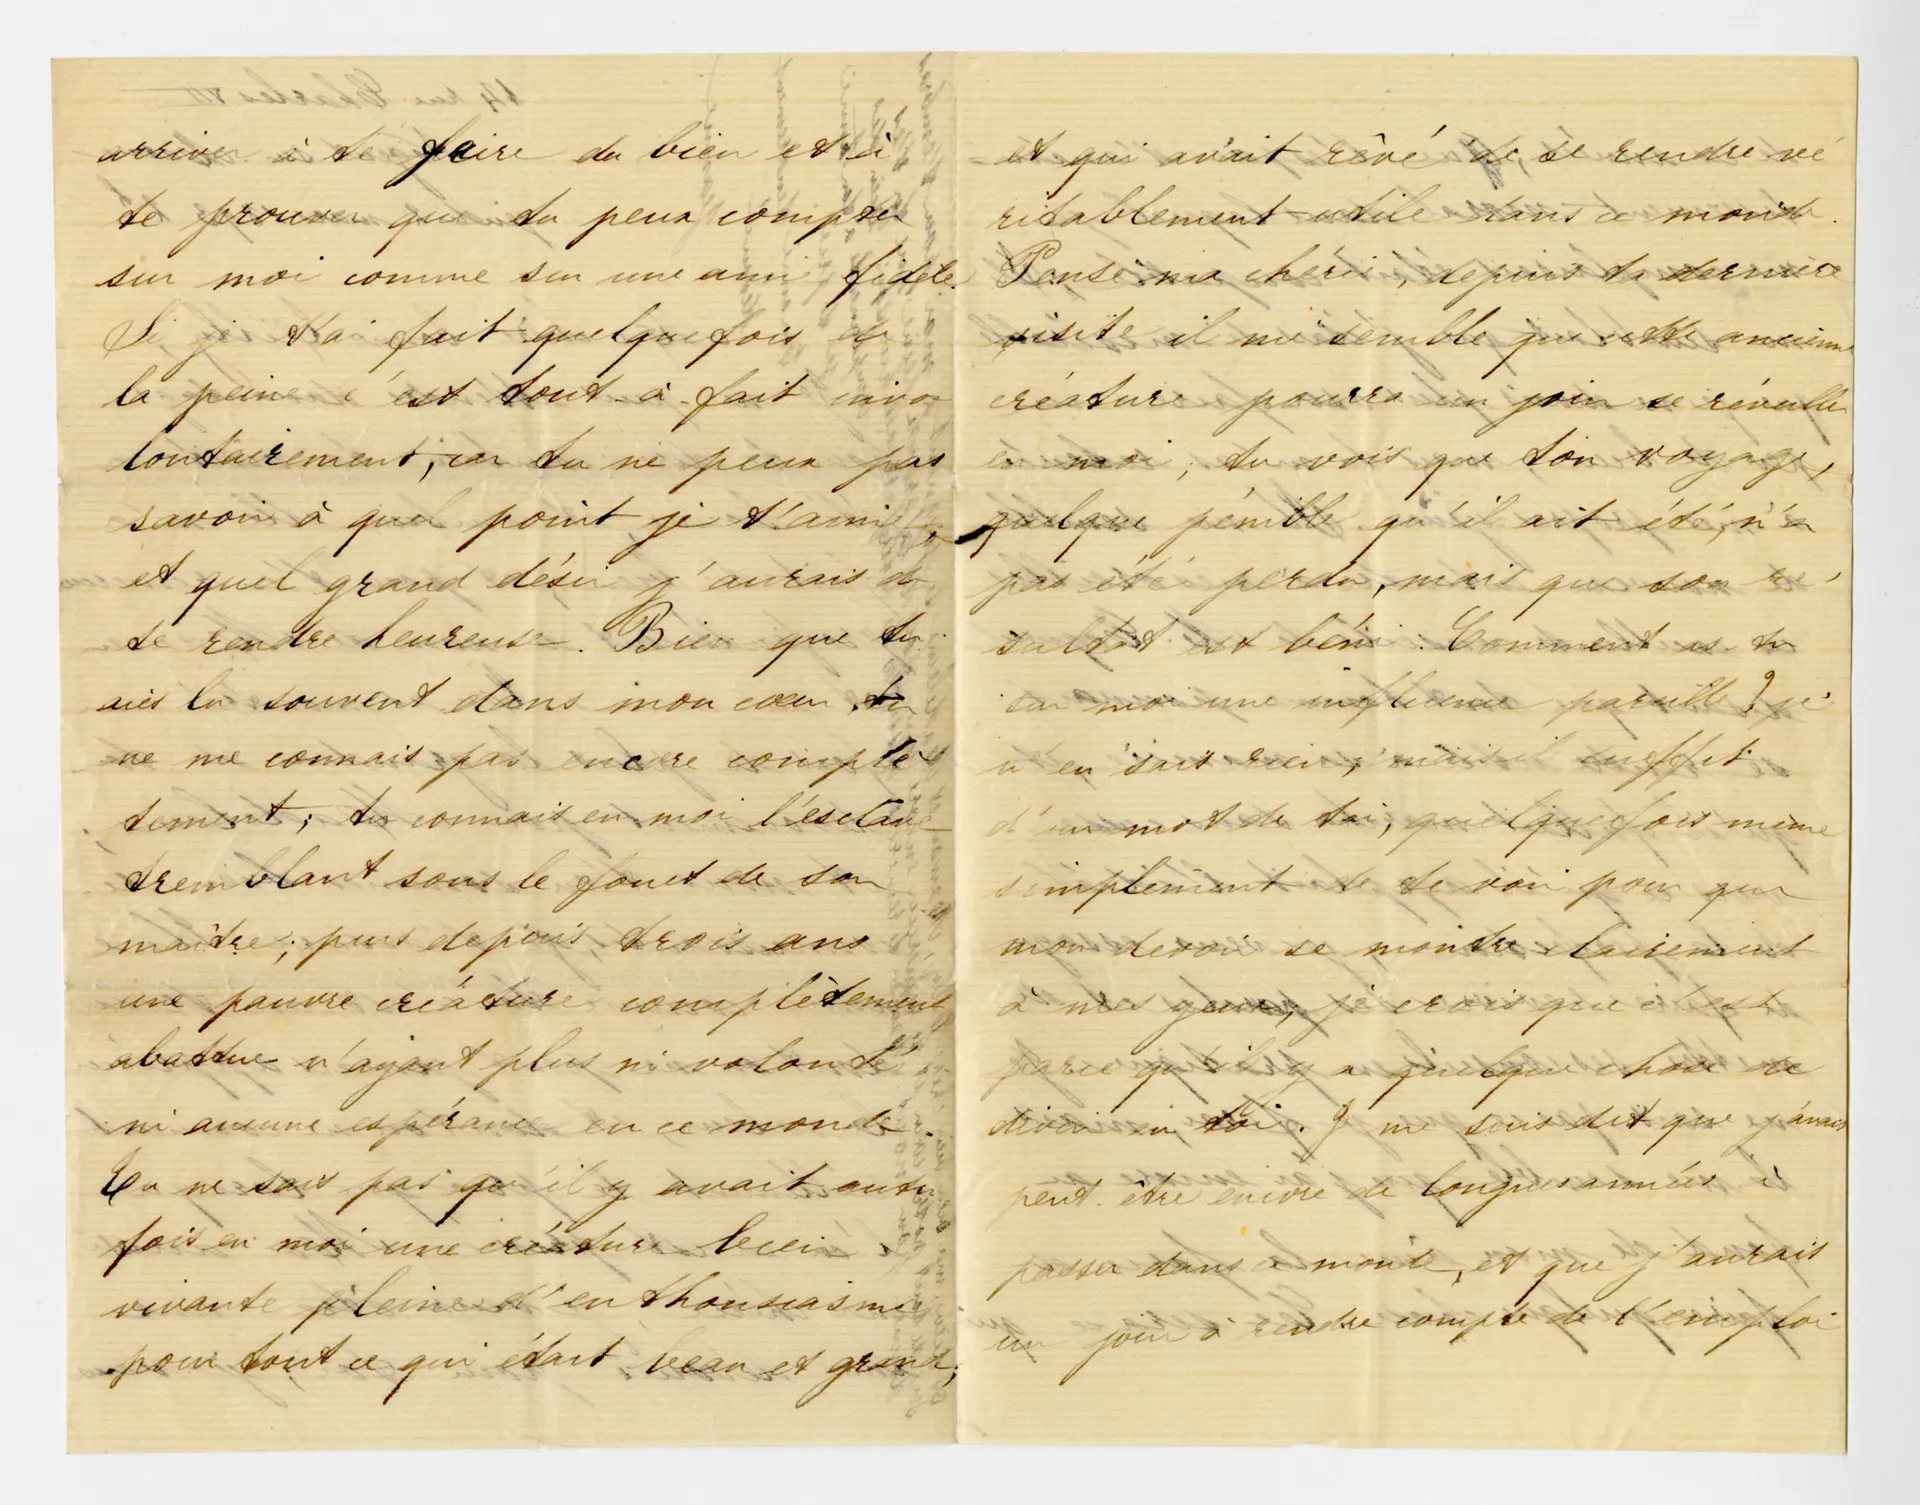 arriver à te faire du bien et à
te prouver que tu peux compter
sur moi comme sur une amie fidèle.
Si je t'ai fait quelquefois de
la peine c'est tout-à-fait invo
lontairement, car tu ne peux pas
savoir à quel point je t'aime,
et quel grand désir j'aurais de
te rendre heureuse. Bien que tu
aies lu souvent dans mon cœur, tu
ne me connais pas encore complè
tement; tu connais en moi l'esclave
tremblant sous le fouet de son
maître; puis depuis trois ans
une pauvre créature complètement
abattue n'ayant plus ni volonté
ni aucune espérance en ce monde.
Tu ne sais pas qu'il y avait autre
fois en moi une créature bien
vivante pleine d'enthousiasme
pour tout ce qui était beau et grand;
et qui avait rêvé de se rendre vé
ritablement utile dans ce monde.
Pense ma chérie, depuis ta dernière
visite il me semble que cette ancienne
créature pourra un jour se réveiller
en moi; tu vois que ton voyage,
quelque pénible qu'il ait été, n'a
pas été perdu, mais que son ré
sultat est béni. Comment as-tu
sur moi une influence pareille? je
n'en sais rien, mais il suffit
d'un mot de toi, quelquefois même
simplement de te voir pour que
mon devoir se montre clairement
à mes yeux, je crois que c'est
parce qu'il y a quelque chose de
divin en toi. Je me suis dit que j'avais
peut-être encore de longues années à
passer dans ce monde, et que j'aurais
un jour à rendre compte de l'emploi
14 rue Charles VII